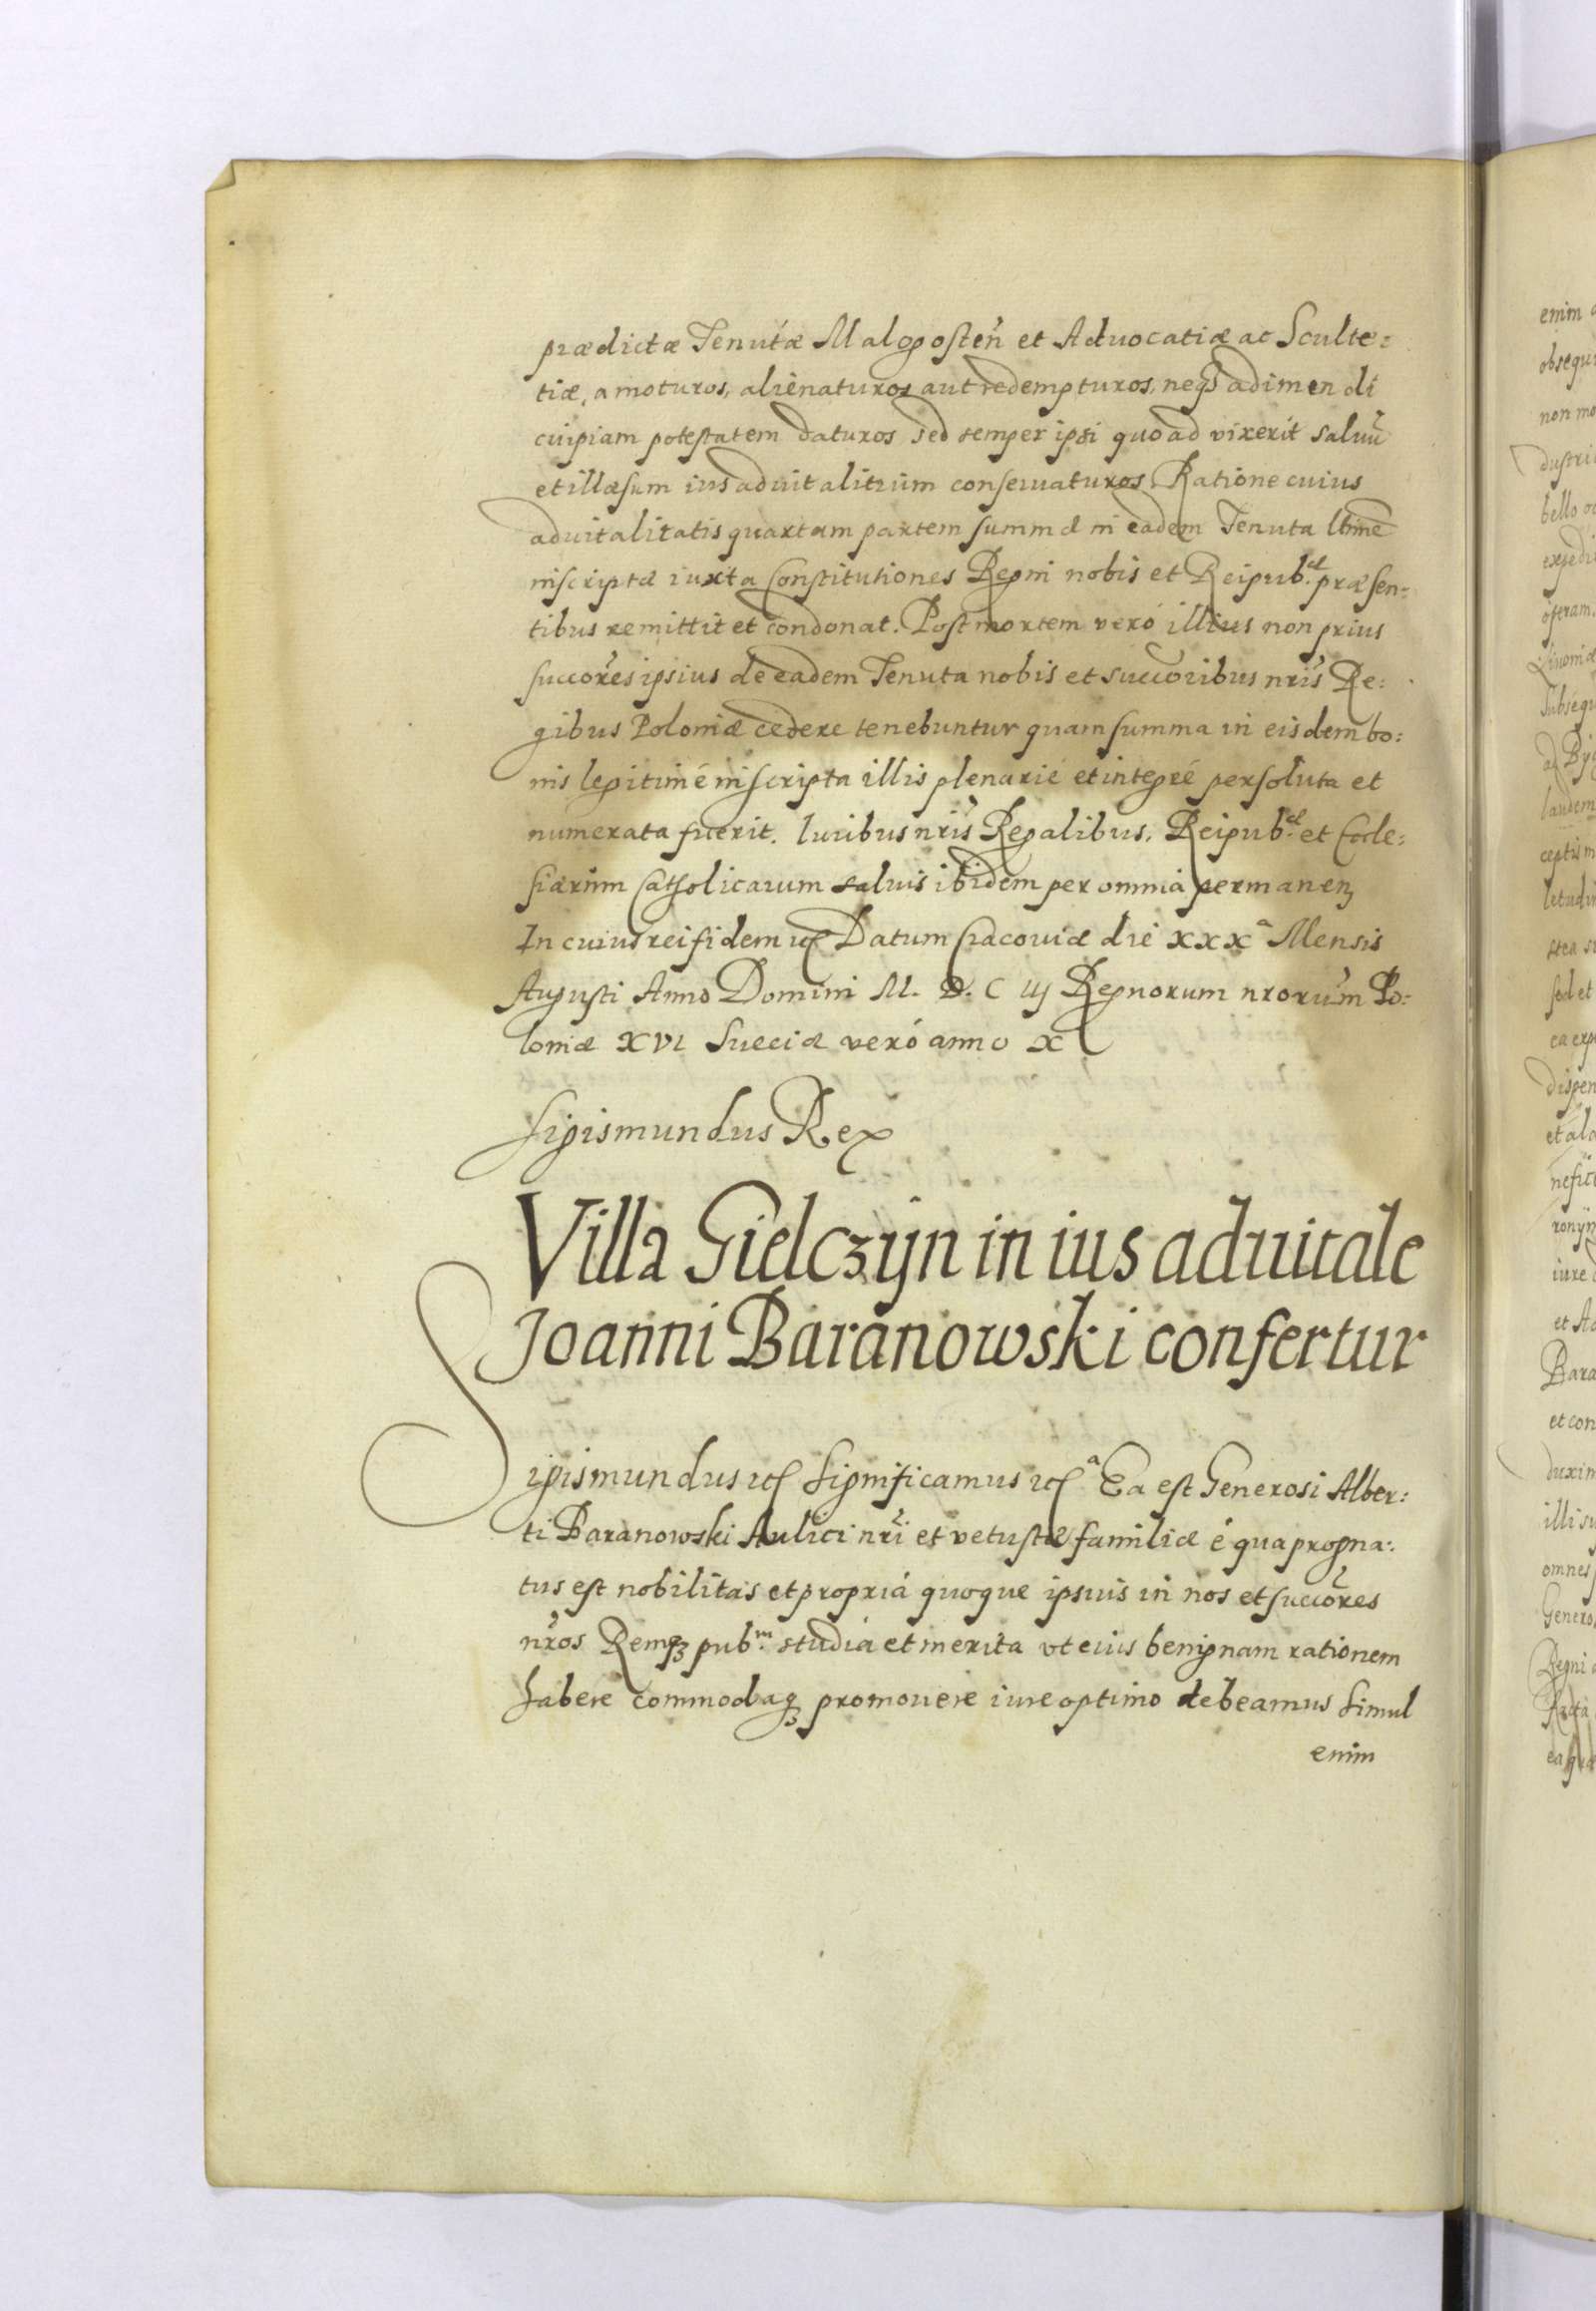 prædictæ Tenutæ Malogosteñ et Aduocatiæ ac Sculte:
tiæ, amoturos, alienaturos aut redempturos, neqȝ adimendi
cuipiam potestatem daturos sed semper ipsi quoad vixerit saluũ
et illæsum ius aduitalitium conseruaturos. Ratione cuius
aduitalitatis quartam partem summæ in eadem Tenuta ltimẽ
inscriptæ iuxta Constitutiones Regni nobis et Reipub.æ præsen:
tibus remittit et condonat. Post mortem veró illius non prius
succores ipsius de eadem Tenuta nobis et succoribus nris Re:
gibus Poloniæ cedere tenebuntur quam summa in eisdem bo:
nis legitimé inscripta illis plenarié et integré persoluta et
numerata fuerit. Iuribus nris Regalibus, Reipub.æ et Eccle:
siarum Catholicarum saluis ibidem per omnia permanenȝ
In cuius rei fidem etc Datum Cracouiæ die XXXa Mensis
Augusti Anno Domini M. D. C iij Regnorum nrorum Po:
loniæ XVI Sueciæ veró anno X
Sigismundus Rex
Villa Gielczÿn in ius aduitale
Joanni Baranowski confertur
Sigismundus etc Significamus etc a Ea est Generosi Alber:
ti Baranowski Aulici nri et vetustæ familiæ é qua progna:
tus est nobilitas et propriá quoque ipsius in nos et succores
nros Remqȝ pub.m studia et merita vt eius benignam rationem
habere commodaqȝ promouere iure optimo debeamus Simul
enim
enim
obsequi
non mo
dustri
bello
expedi
operam
Liuoniæ
subsequ
ad
laudem
ceptis
letudi
stea
sed et
ea exp
dispen
et al
nefici
ronijn
iure
et Ad
Bara
et con
duxim
illi su
omnes
Genero
Regni
facta
ea